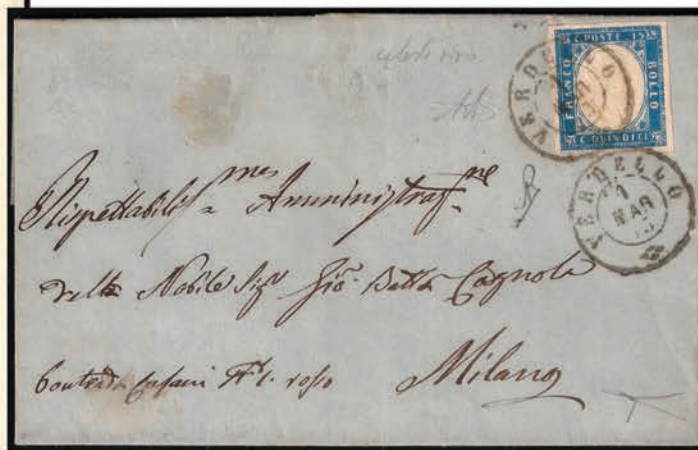 C. POSTE 15
FRANCO
BOLLO
C. QUINDICI
VERDELLO
VERDELLO
1
MAR
Rispettabilissma Amministrazne
della Nobile Sigra Gio Batta Cagnola
Contrada Cusani N 1 rosso Milano